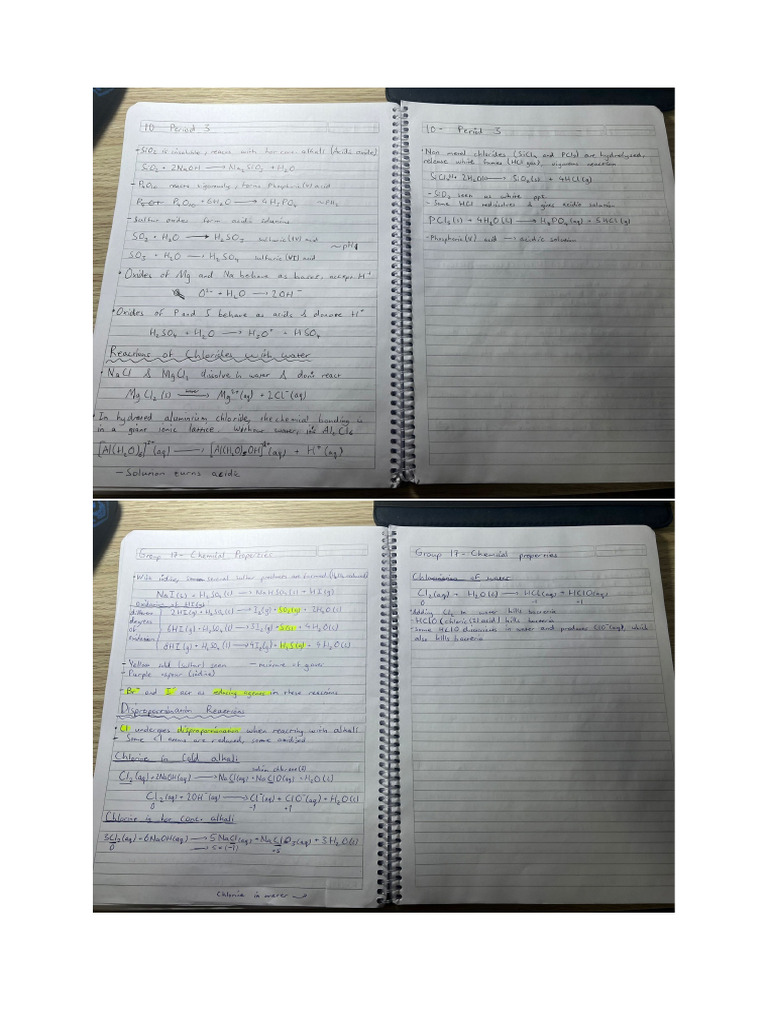 10 Period 3
- SiO₂ is insoluble, reacts with hot conc alkali (Acidic oxide)
SiO₂ + 2NaOH ⟶ Na₂SiO₃ + H₂O
- P₄O₁₀ reacts vigorously, forms Phosphoric(V) acid
P₄O₁₀ + 6H₂O ⟶ 4H₃PO₄ ~pH2
- Sulfur oxides form acidic solutions
SO₂ + H₂O ⟶ H₂SO₃ sulfuric(IV) acid
~pH1
SO₃ + H₂O ⟶ H₂SO₄ sulfuric(VI) acid
• Oxides of Mg and Na behave as bases, accept H⁺
O²⁻ + H₂O ⟶ 2OH⁻
• Oxides of P and S behave as acids & donate H⁺
H₂SO₄ + H₂O ⟶ H₃O⁺ + HSO₄
Reactions of Chlorides with water
• NaCl & MgCl₂ dissolve in water & don't react
MgCl₂(s) ⟶ Mg²⁺(aq) + 2Cl⁻(aq)
• In hydrated aluminium chloride, the chemical bonding is
in a giant ionic lattice. Without water, its Al₂Cl₆
[Al(H₂O)₆]³⁺(aq) ⟶ [Al(H₂O)₅OH]²⁺(aq) + H⁺(aq)
- Solution turns acidic
10 - Period 3
• Non metal chlorides (SiCl₄ and PCl₅) are hydrolysed,
release white fumes (HCl gas), vigorous reaction
SiCl₄(l) + 2H₂O(l) ⟶ SiO₂(s) + 4HCl(g)
- SiO₂ seen as white ppt
- Some HCl redissolves & gives acidic solution
PCl₅(s) + 4H₂O(l) ⟶ H₃PO₄(aq) + 5HCl(g)
- Phosphoric(V) acid ⟶ acidic solution
Group 17 - Chemical Properties
• With iodine, several sulfur products are formed
NaI(s) + H₂SO₄(l) ⟶ NaHSO₄(s) + HI(g)
Oxidation of HI(g)
different degrees of oxidation
2HI(g) + H₂SO₄(l) ⟶ I₂(g) + SO₂(g) + 2H₂O(l)
6HI(g) + H₂SO₄(l) ⟶ 3I₂(g) + S(s) + 4H₂O(l)
8HI(g) + H₂SO₄(l) ⟶ 4I₂(g) + H₂S(g) + 4H₂O(l)
- Yellow solid (sulfur) seen - mixture of gases
- Purple vapour (iodine)
• Br⁻ and I⁻ act as reducing agents in these reactions
Disproportionation Reactions
• Cl undergoes disproportionation when reacting with alkali
- Some Cl atoms are reduced, some oxidised
Chlorine in Cold alkali
Cl₂(aq) + 2NaOH(aq) ⟶ NaCl(aq) + NaClO(aq) + H₂O(l)
Cl₂(aq) + 2OH⁻(aq) ⟶ Cl⁻(aq) + ClO⁻(aq) + H₂O(l)
0 -1 +1
Chlorine in hot conc. alkali
3Cl₂(aq) + 6NaOH(aq) ⟶ 5NaCl(aq) + NaClO₃(aq) + 3H₂O(l)
0 ⟶ 5 × (-1) +5
Chlorine in water
Group 17 - Chemical properties
Chlorination of water
Cl₂(aq) + H₂O(l) ⟶ HCl(aq) + HClO(aq)
0 -1 +1
• Adding Cl₂ to water kills bacteria
• HClO (chloric(I) acid) kills bacteria
• Some HClO dissociates in water and produces ClO⁻(aq), which
also kills bacteria